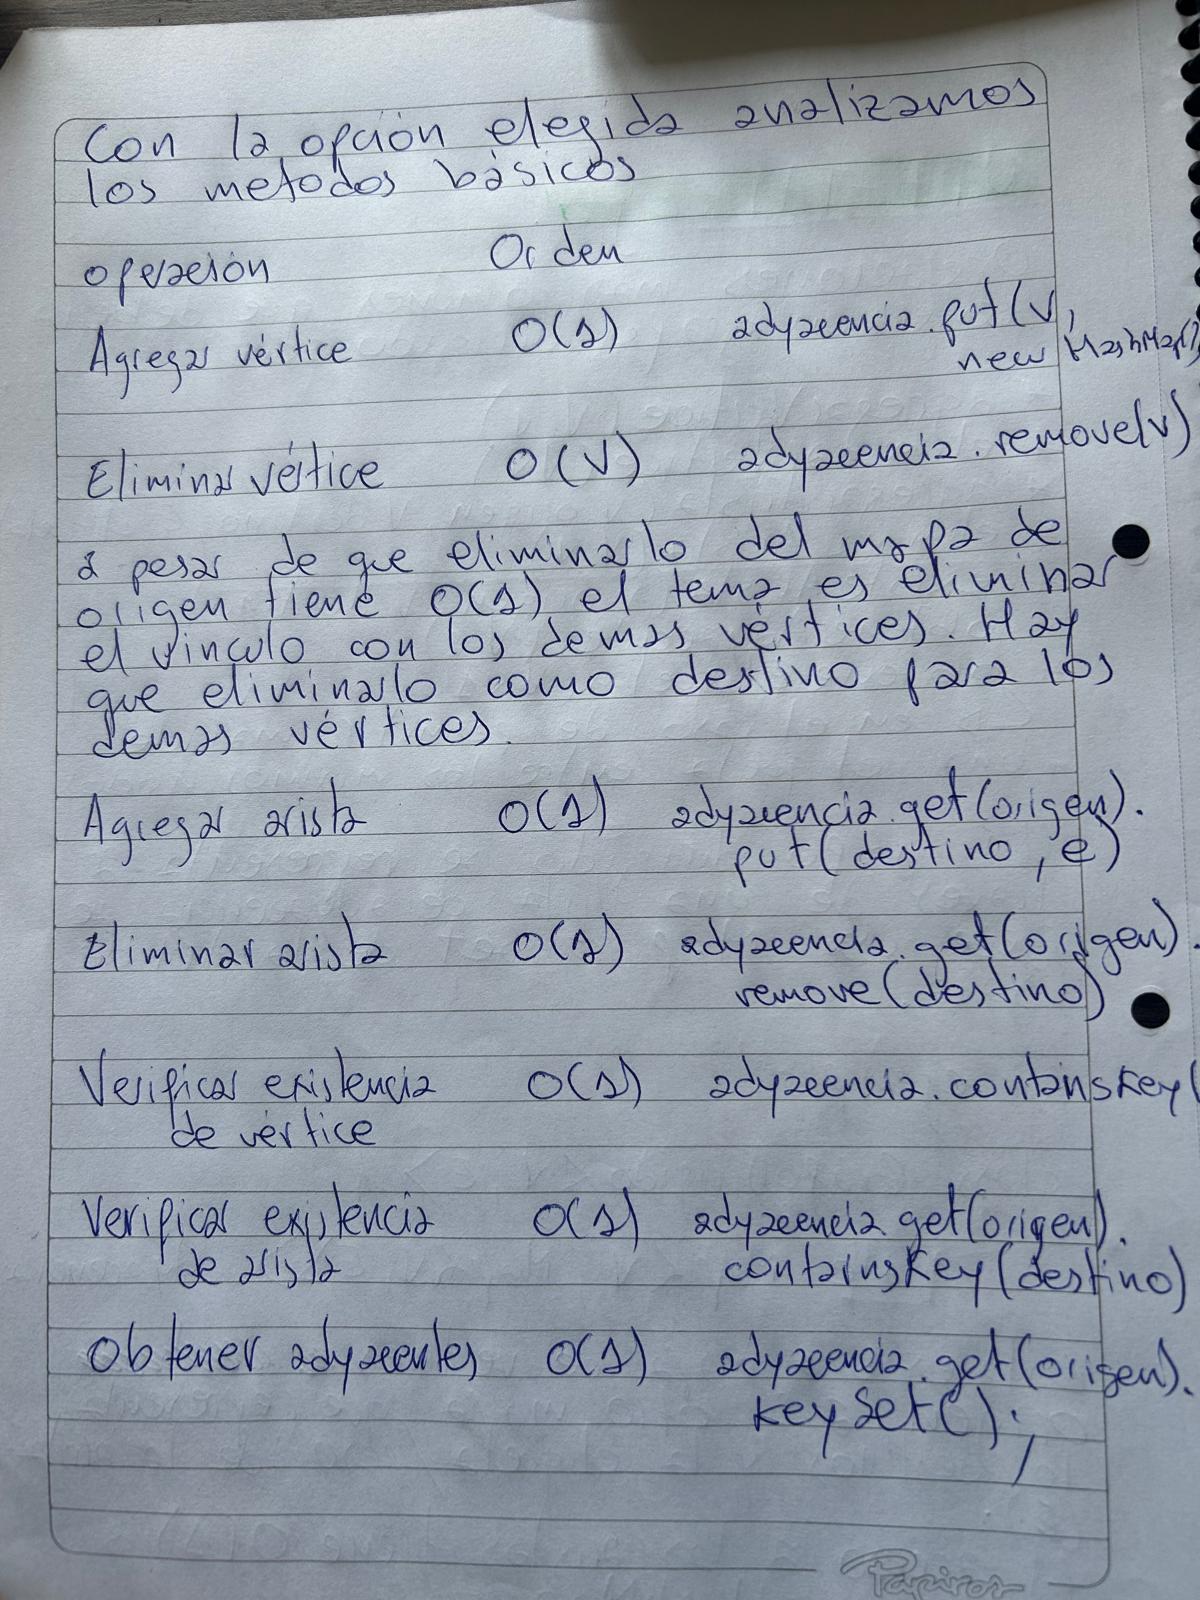 Con la opción elegida analizamos
los metodos básicos
operación Orden
Agregar vértice O(1) adyacencia.put(v,
new HashMap()
Eliminar vértice O(V) adyacencia.remove(v)
a pesar de que eliminarlo del mapa de
origen tiene O(1) el tema es eliminar
el vinculo con los demas vértices. Hay
que eliminarlo como destino para los
demas vértices.
Agregar arista O(1) adyacencia.get(origen).
put(destino, e)
Eliminar arista O(1) adyacencia.get(origen).
remove(destino)
Verificar existencia O(1) adyacencia.containsKey(
de vértice
Verificar existencia O(1) adyacencia.get(origen).
de arista containsKey(destino)
Obtener adyacentes O(1) adyacencia.get(origen).
keySet();
Papiros